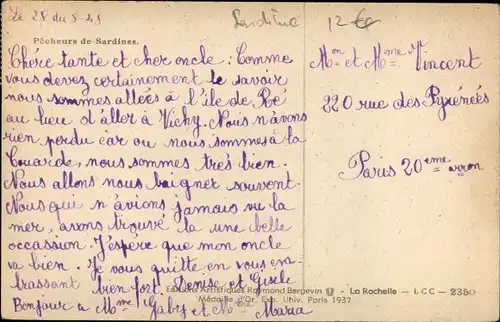 Le 28 du 8-48
Sardine
12 €
Pêcheurs de Sardines.
Chére tante et cher oncle : Comme
vous devez certainement le savoir
nous sommes allées à l'île de Ré
au lieu d'aller à Vichy. Nous n'avons
rien perdu car ou nous sommes à la
Couarde, nous sommes très bien.
Nous allons nous baigner souvent.
Nous qui n'avions jamais vu la
mer, avons trouvé la une belle
occassion. J'espère que mon oncle
va bien. Je vous quitte en vous em
brassant bien fort. Denise et Gisèle
Bonjour a Mme Gaby et Me Maria
Mon et Mme Vincent
220 rue des Pyrénées
Paris 20eme arron
Editions Artistiques Raymond Bergevin - La Rochelle - I.C.C - 2350
Médaille d'Or, Exp. Univ. Paris 1937